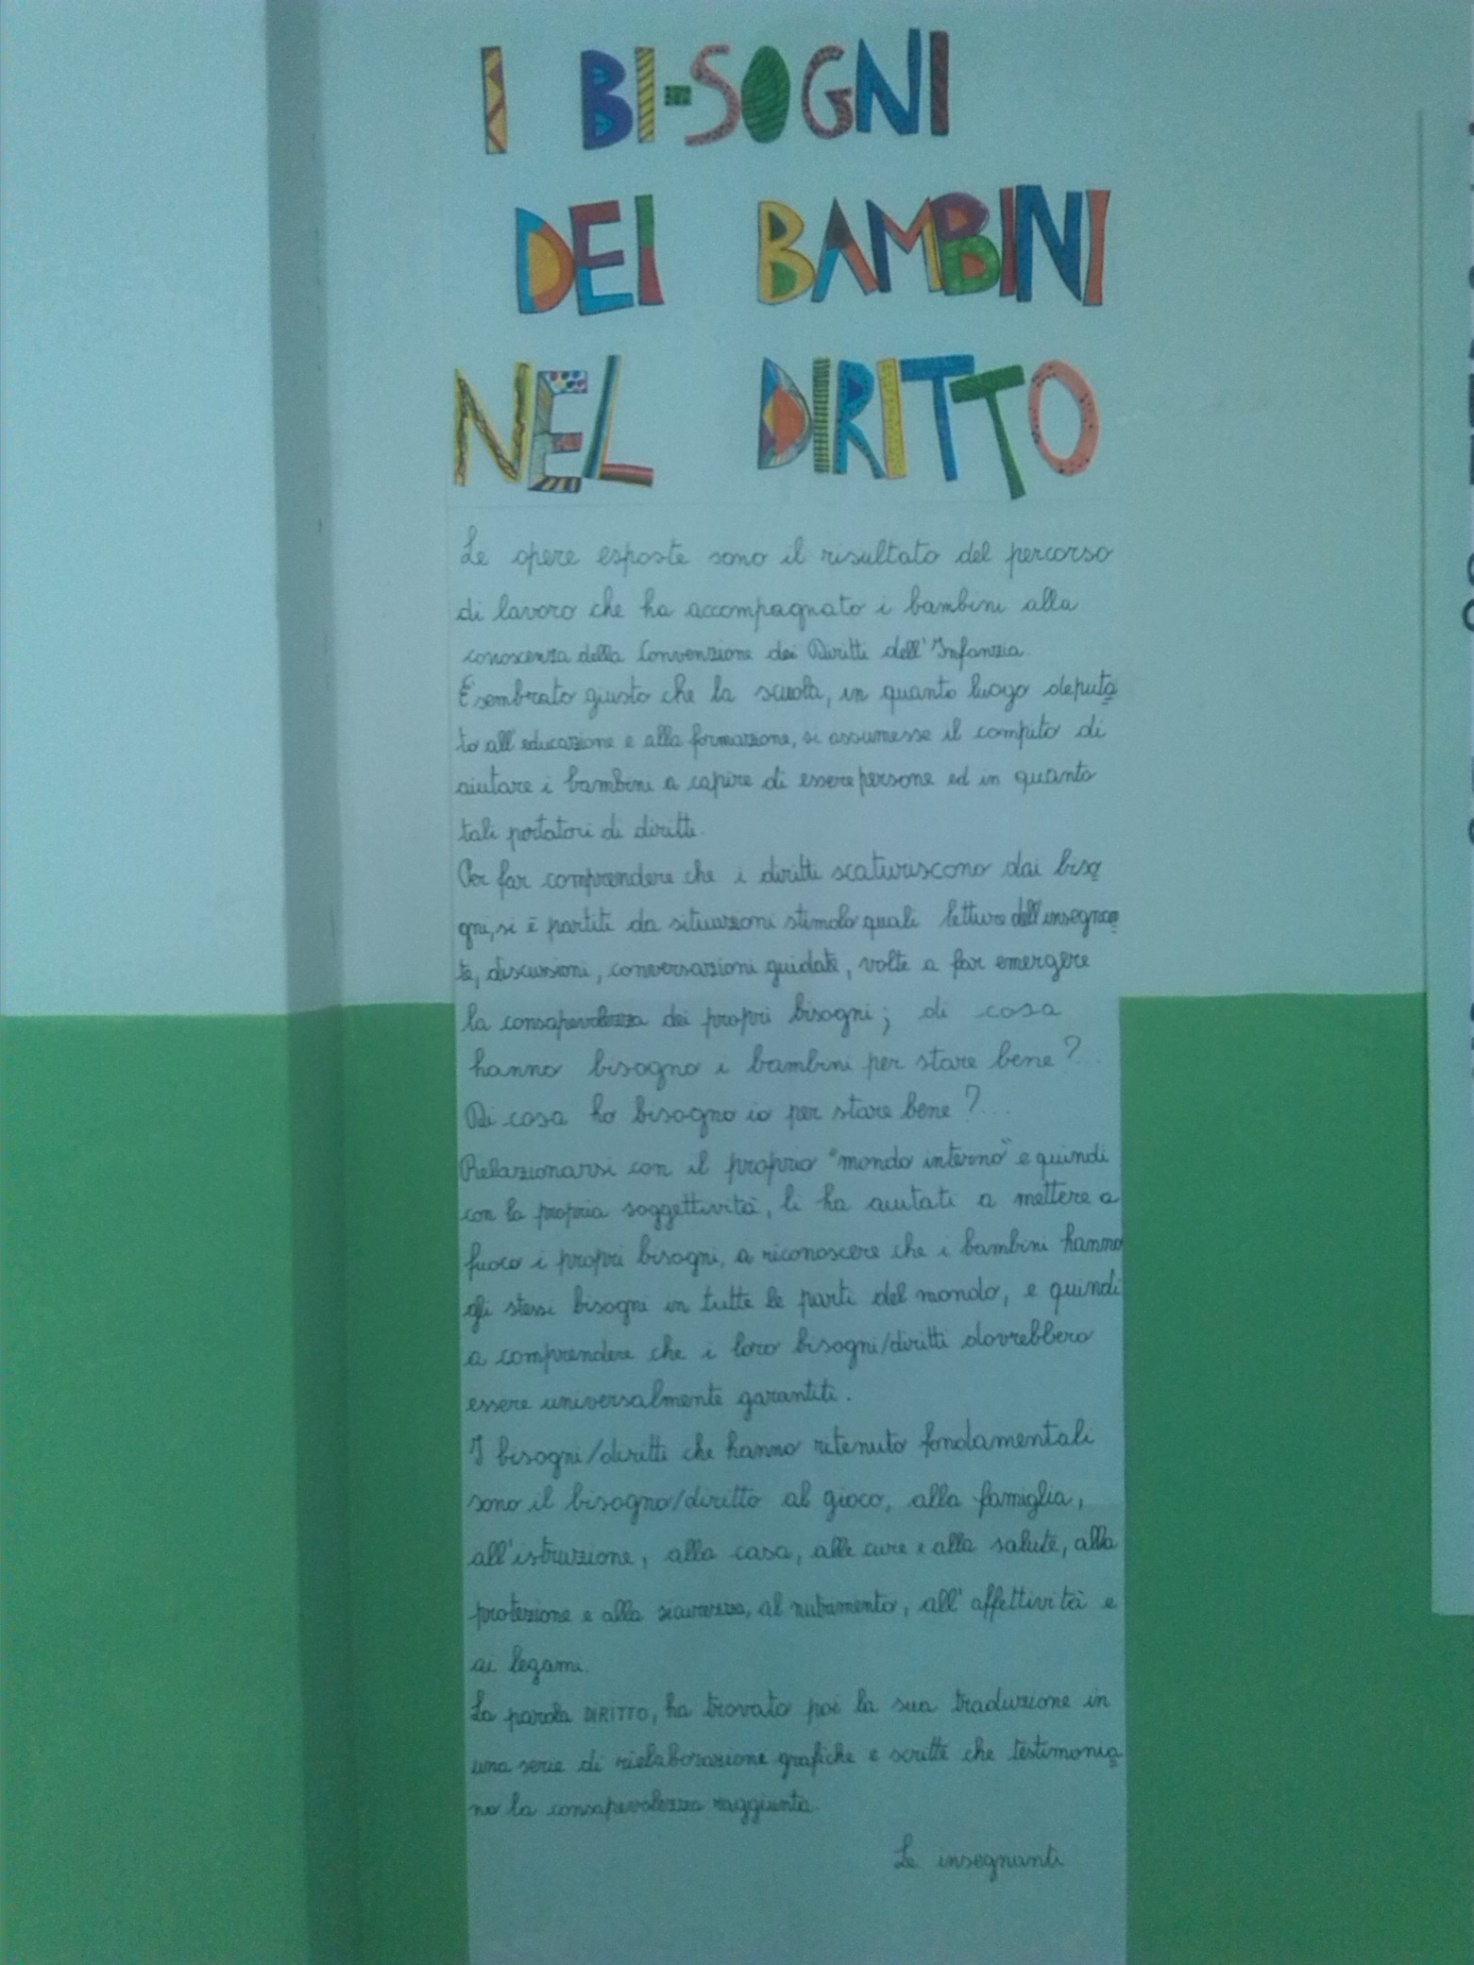 I BI-SOGNI
DEI BAMBINI
NEL DIRITTO
Le opere esposte sono il risultato del percorso
di lavoro che ha accompagnato i bambini alla
conoscenza della Convenzione dei Diritti dell'Infanzia.
È sembrato giusto che la scuola, in quanto luogo deputa
to all'educazione e alla formazione, si assumesse il compito di
aiutare i bambini a capire di essere persone ed in quanto
tali portatori di diritti.
Per far comprendere che i diritti scaturiscono dai biso
gni, si è partiti da situazioni stimolo quali letture dell'insegnan
te, discussioni, conversazioni guidate, volte a far emergere
la consapevolezza dei propri bisogni; di cosa
hanno bisogno i bambini per stare bene?...
Di cosa ho bisogno io per stare bene?...
Relazionarsi con il proprio "mondo interno" e quindi
con la propria soggettività, li ha aiutati a mettere a
fuoco i propri bisogni, a riconoscere che i bambini hanno
gli stessi bisogni in tutte le parti del mondo, e quindi
a comprendere che i loro bisogni/diritti dovrebbero
essere universalmente garantiti.
I bisogni/diritti che hanno ritenuto fondamentali
sono il bisogno/diritto al gioco, alla famiglia,
all'istruzione, alla casa, alle cure e alla salute, alla
protezione e alla sicurezza, al nutrimento, all'affettività e
ai legami.
La parola DIRITTO, ha trovato poi la sua traduzione in
una serie di rielaborazione grafiche e scritte che testimonia
no la consapevolezza raggiunta.
Le insegnanti